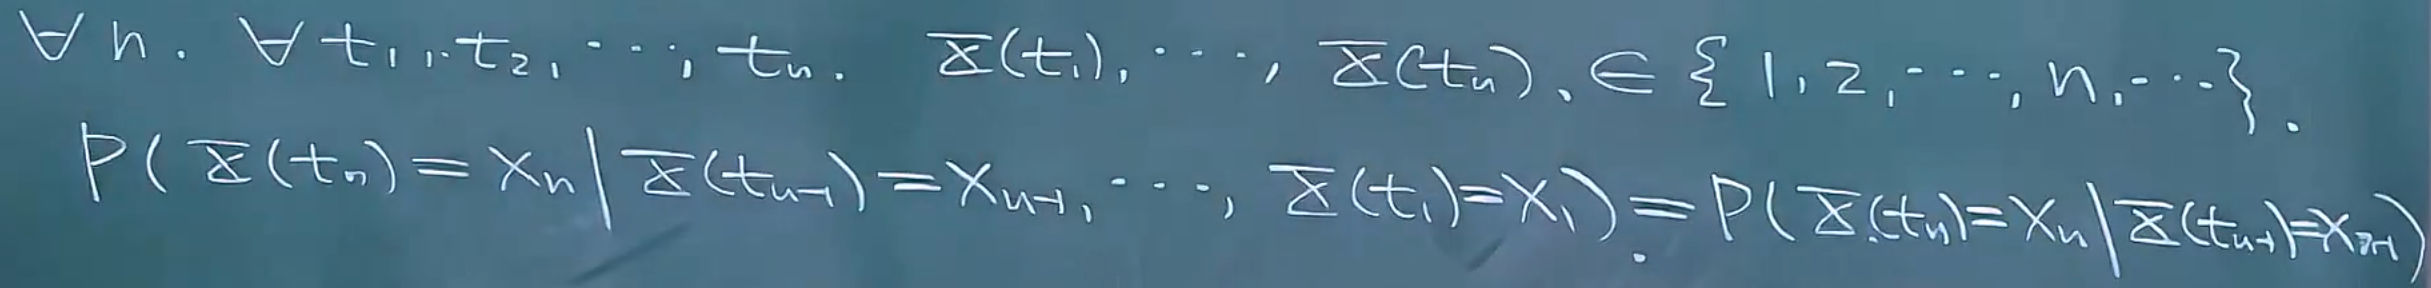 ∀n. ∀t₁, t₂, ⋯, tₙ. X(t₁), ⋯, X(tₙ). ∈ {1, 2, ⋯, n, ⋯}.
P(X(tₙ)=xₙ | X(tₙ₋₁)=xₙ₋₁, ⋯, X(t₁)=x₁) = P(X(tₙ)=xₙ | X(tₙ₋₁)=xₙ₋₁)